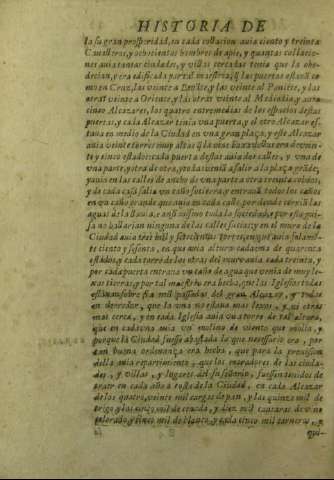 HISTORIA DE
la su gran prosperidad, en cada collacion auia ciento y treinta
Caualleros, y ochocientos hombres de apie, y quantas collacio-
nes auia tantas ciudades, y villas cercadas tenia que la obe-
decian, y era edificada por tal maestria, q̃ las puertas estauã co-
mo en Cruz, las veinte a las veinte al Poniẽte, y las
otras veinte a Oriente, y las otras veinte al Mediodia, y auia
cinco Alcazares, los quatro entre medias de los espacios destas
puertas, y cada Alcazar tenia vna puerta, y el otro Alcazar es-
taua en medio de la Ciudad en vna gran plaça, y este Alcazar
auia veinte torres muy altas era de vein-
te y cinco estados; cada puerta destas auia dos calles, y vna de
vna parte, y otra de otra, y todas venian a salir a la plaça grãde,
y auia en las calles de ancho de vna parte a otra treinta cobdos,
y de cada casa salia vn caño so tierra, y entrauã todos los caños
en vn caño grande que auia en cada calle, por dendo corriã las
aguas de la lluuia, e ansi mismo toda la suciedad, por esta gui-
sa no hallarian ninguna de las calles sucias; y en el muro de la
Ciudad auia tres mil y setecientas torres, en que auia
ciento y sesenta, en que auia en torre cada vna de quarenta
estados, y cada torre de las otras del muro auia cada treinta, y
por cada puerta entraua vn caño de agua que venia de muy le-
xas tierras, y por tal maestria era hecho, que las Iglesias todas
estauan sobre mil passadas del gran Alcazar, y todas
en derredor, que la vna no estaua mas lexos, y ni otras
mas cerca, y en cada Iglesia auia vna torre de tal altura,
que en cada vna auia vn molino de viento que molia, y
porque la Ciudad fuesse abastada lo que necessario era, por
tan buena ordenança era hecha, que para la prouision
della auia repartimiento, que los moradores de las ciuda-
des, y villas, y lugares del su señorio, fuessen tenidos de
traer en cada año a costa de la Ciudad, en cada Alcazar
de los quatro, veinte mil cargas de pan, y las quinze mil de
trigo, y las cinco mil de ceuada, y diez mil cantaras de vino
colorado, y cinco mil de blanco, y cada cinco mil carneros, y